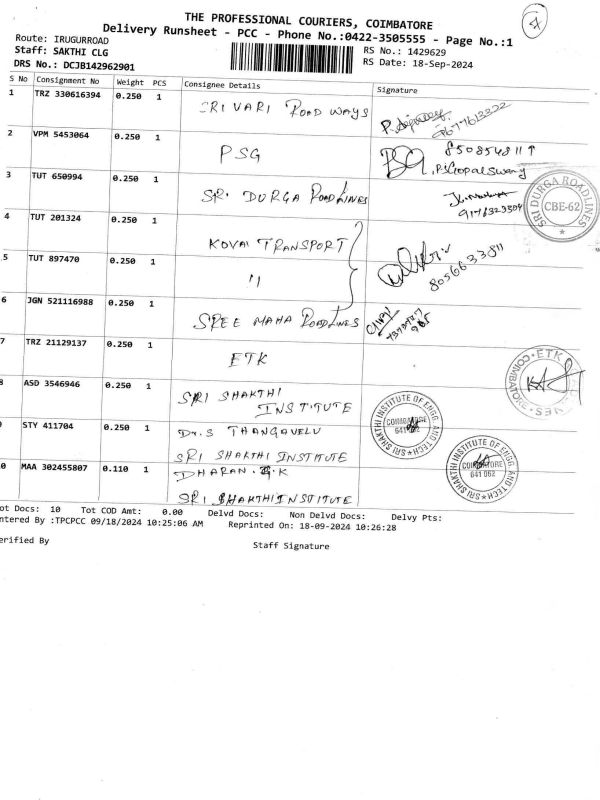 THE PROFESSIONAL COURIERS, COIMBATORE
4
Delivery Runsheet - PCC - Phone No.:0422-3505555 - Page No.:1
Route: IRUGURROAD
RS No.: 1429629
Staff: SAKTHI CLG
RS Date: 18-Sep-2024
DRS No.: DCJB142962901
S No Consignment No Weight PCS Consignee Details Signature
1 TRZ 330616394 0.250 1 SRI VARI ROAD WAYS
2 VPM 5453064 0.250 1 PSG
3 TUT 650994 0.250 1 SRI DURGA ROADLINES
SRI DURGA ROADLINES
CBE-62
4 TUT 201324 0.250 1 KOVAI TRANSPORT
5 TUT 897470 0.250 1 "
8056633811
6 JGN 521116988 0.250 1 SREE MAHA ROADLINES
7 TRZ 21129137 0.250 1 ETK
8 ASD 3546946 0.250 1 SRI SHAKTHI
INSTITUTE
SRI SHAKTHI INSTITUTE OF ENGG. AND TECH
COIMBATORE
641 062
STY 411704 0.250 1 Dr.S THANGAVELU
SRI SHAKTHI INSTITUTE
0 MAA 302455807 0.110 1 DHARAN.G.K
SRI SHAKTHI INSTITUTE
SRI SHAKTHI INSTITUTE OF ENGG. AND TECH
COIMBATORE
641 062
ot Docs: 10 Tot COD Amt: 0.00 Delvd Docs: Non Delvd Docs: Delvy Pts:
ntered By :TPCPCC 09/18/2024 10:25:06 AM Reprinted On: 18-09-2024 10:26:28
erified By
Staff Signature